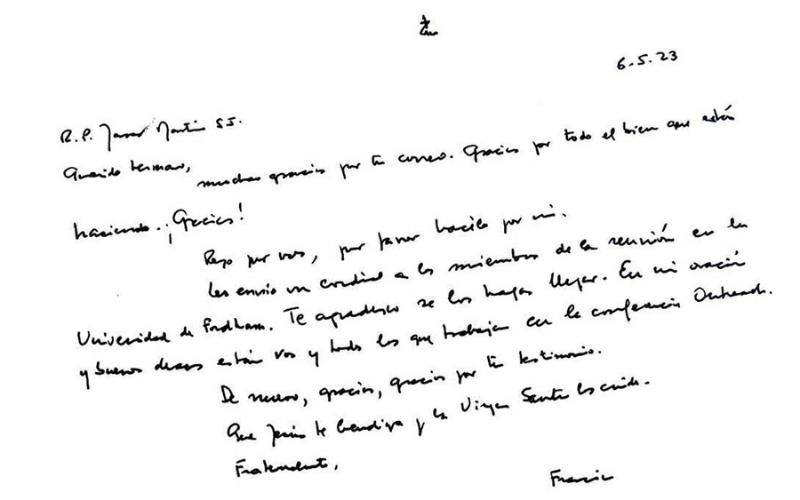 6.5.23
R.P. James Martin SJ.
Querido hermano,
muchas gracias por tu correo. Gracias por todo el bien que estás
haciendo. ¡Gracias!
Rezo por vos, por favor hacelo por mi.
Les envío un cordial a los miembros de la reunión en la
Universidad de Fordham. Te agradezco se los hagas llegar. En mi oración
y buenos deseos están vos y todos los que trabajan en la conferencia Outreach.
De nuevo, gracias, gracias por tu testimonio.
Que Jesús te bendiga y la Virgen Santa los cuide.
Fraternalmente,
Francisco